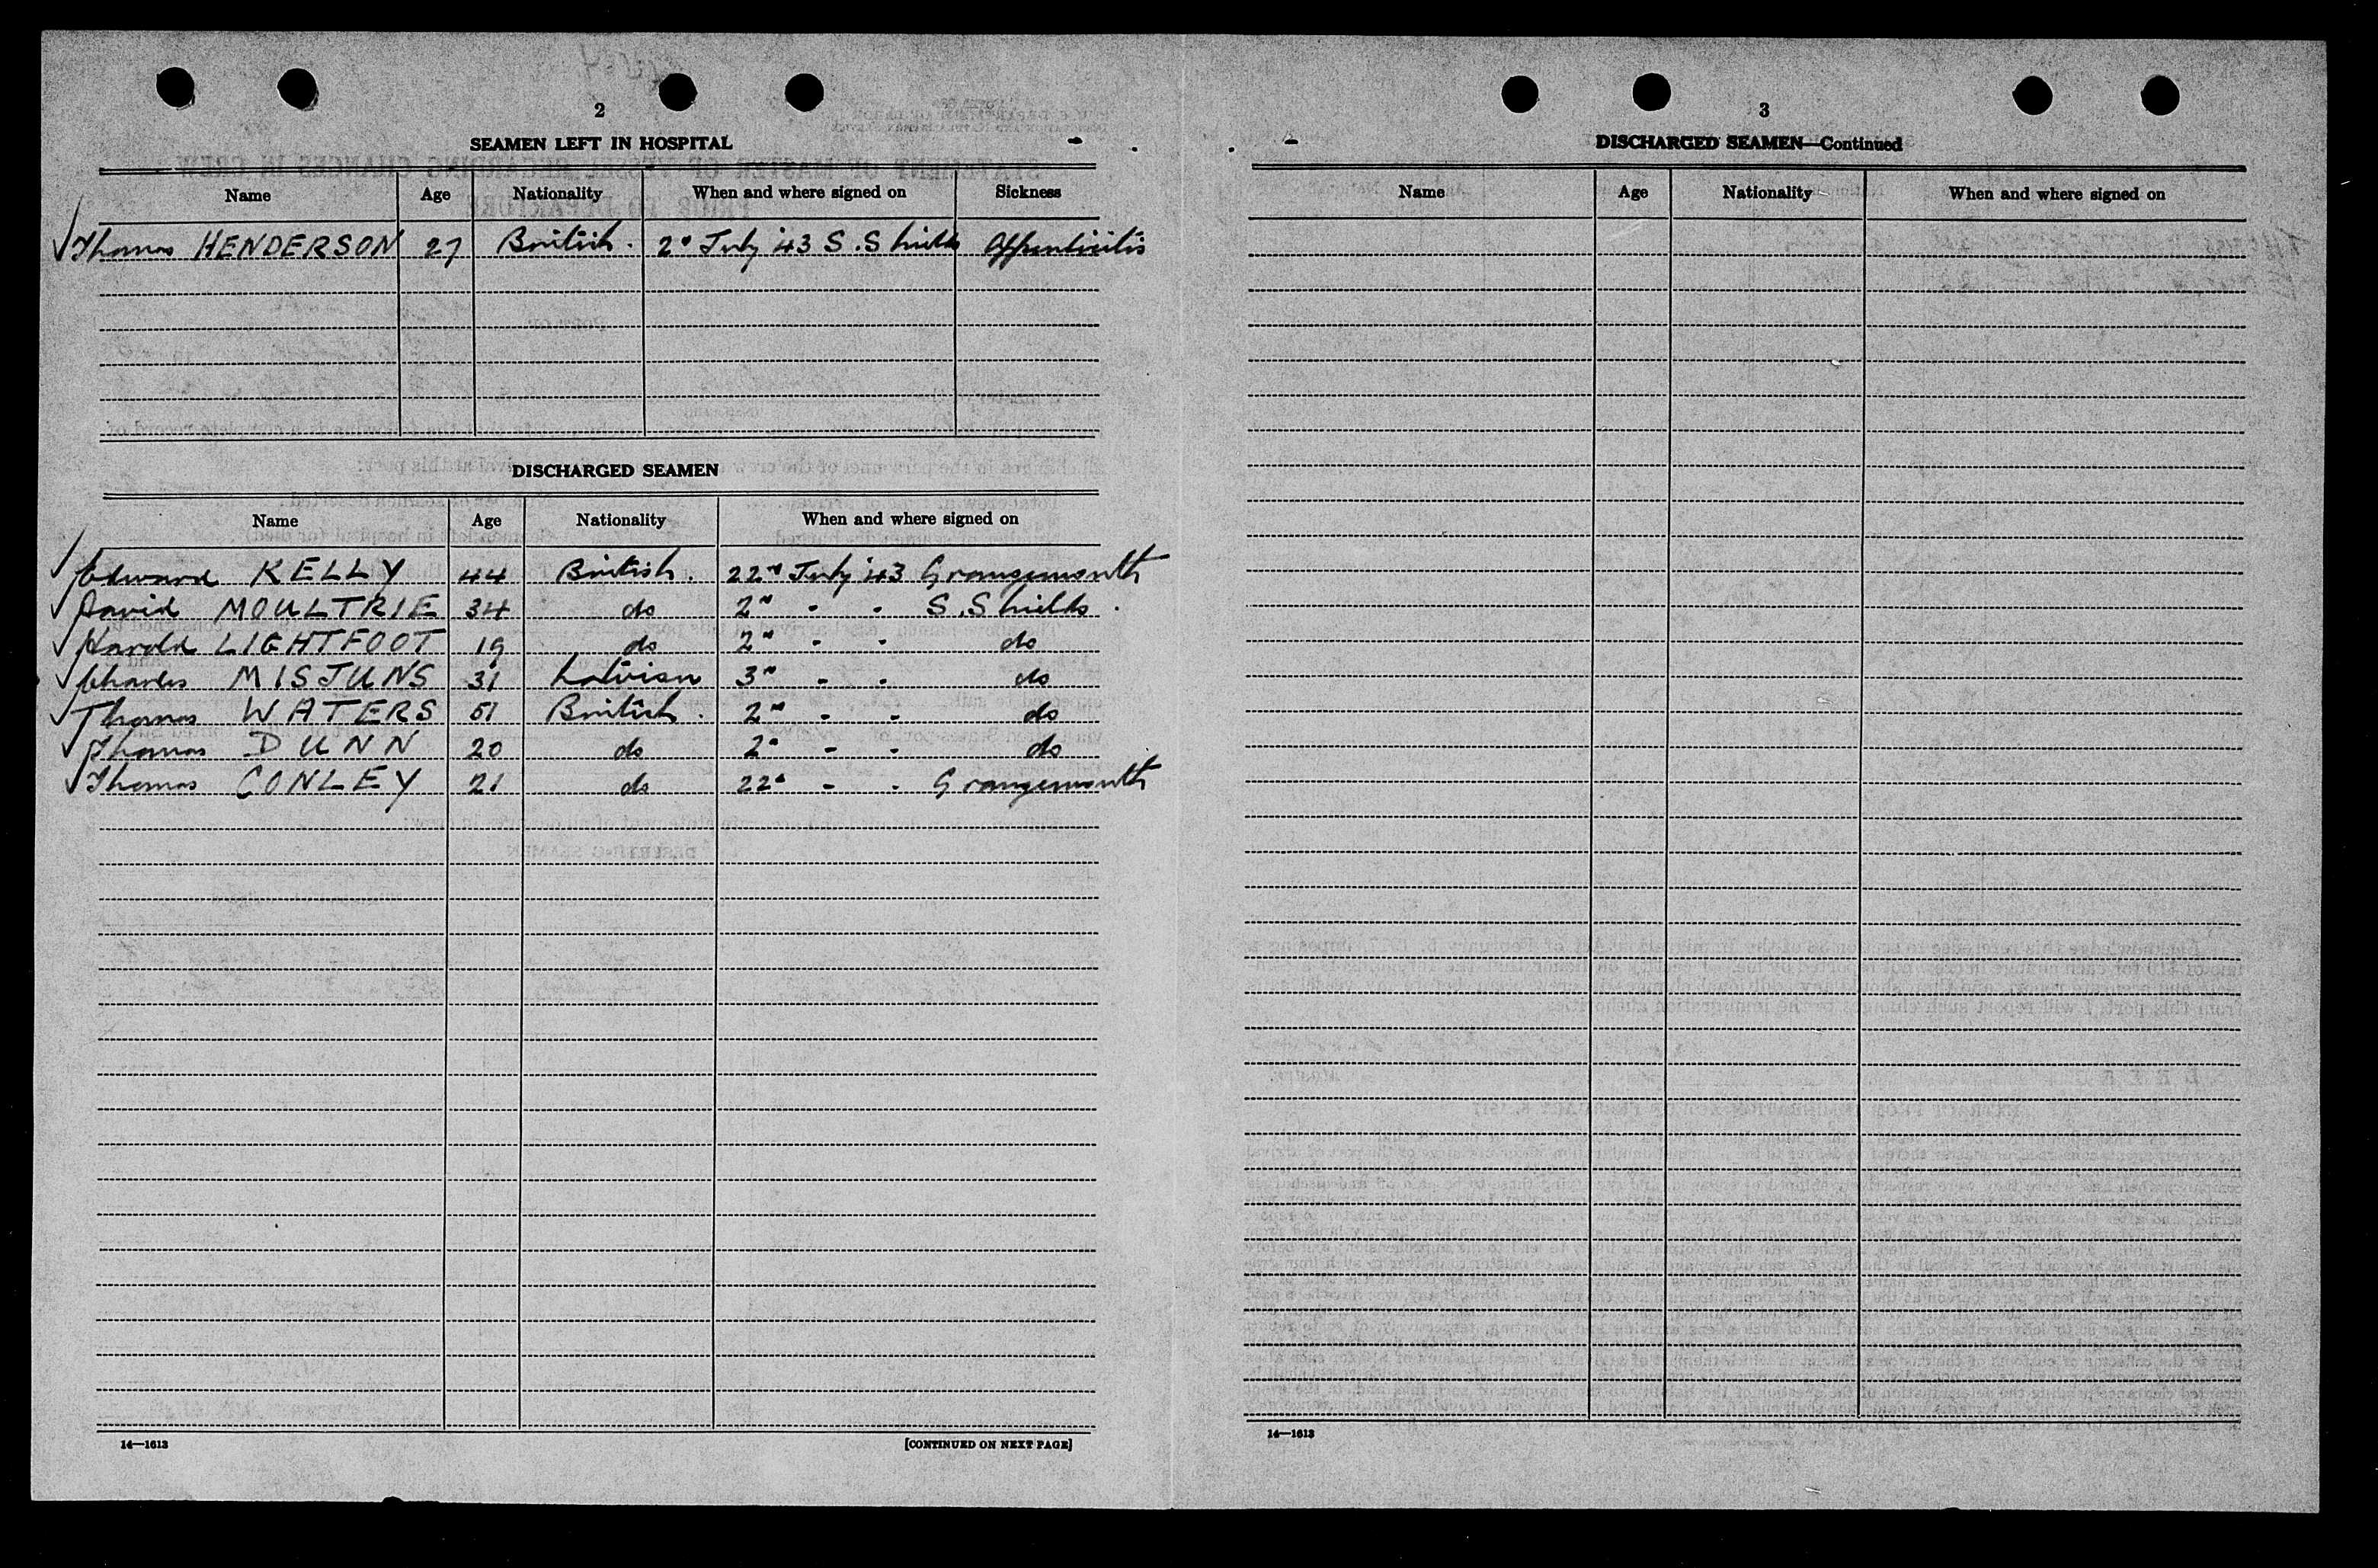 2
SEAMEN LEFT IN HOSPITAL
Name Age Nationality When and where signed on Sickness
Thomas HENDERSON 27 British. 2" July '43 S. Shields Appendicitis
DISCHARGED SEAMEN
Name Age Nationality When and where signed on
Edward KELLY 44 British. 22" July '43 Grangemouth
David MOULTRIE 34 do 2" - - S. Shields.
Harold LIGHTFOOT 19 do 2" - - do
Charles MISJUNS 31 Latvian 3" - - do
Thomas WATERS 51 British. 2" - - do
Thomas DUNN 20 do 2" - - do
Thomas CONLEY 21 do 22" - - Grangemouth
14—1613 [CONTINUED ON NEXT PAGE]
3
DISCHARGED SEAMEN—Continued
Name Age Nationality When and where signed on
14—1613